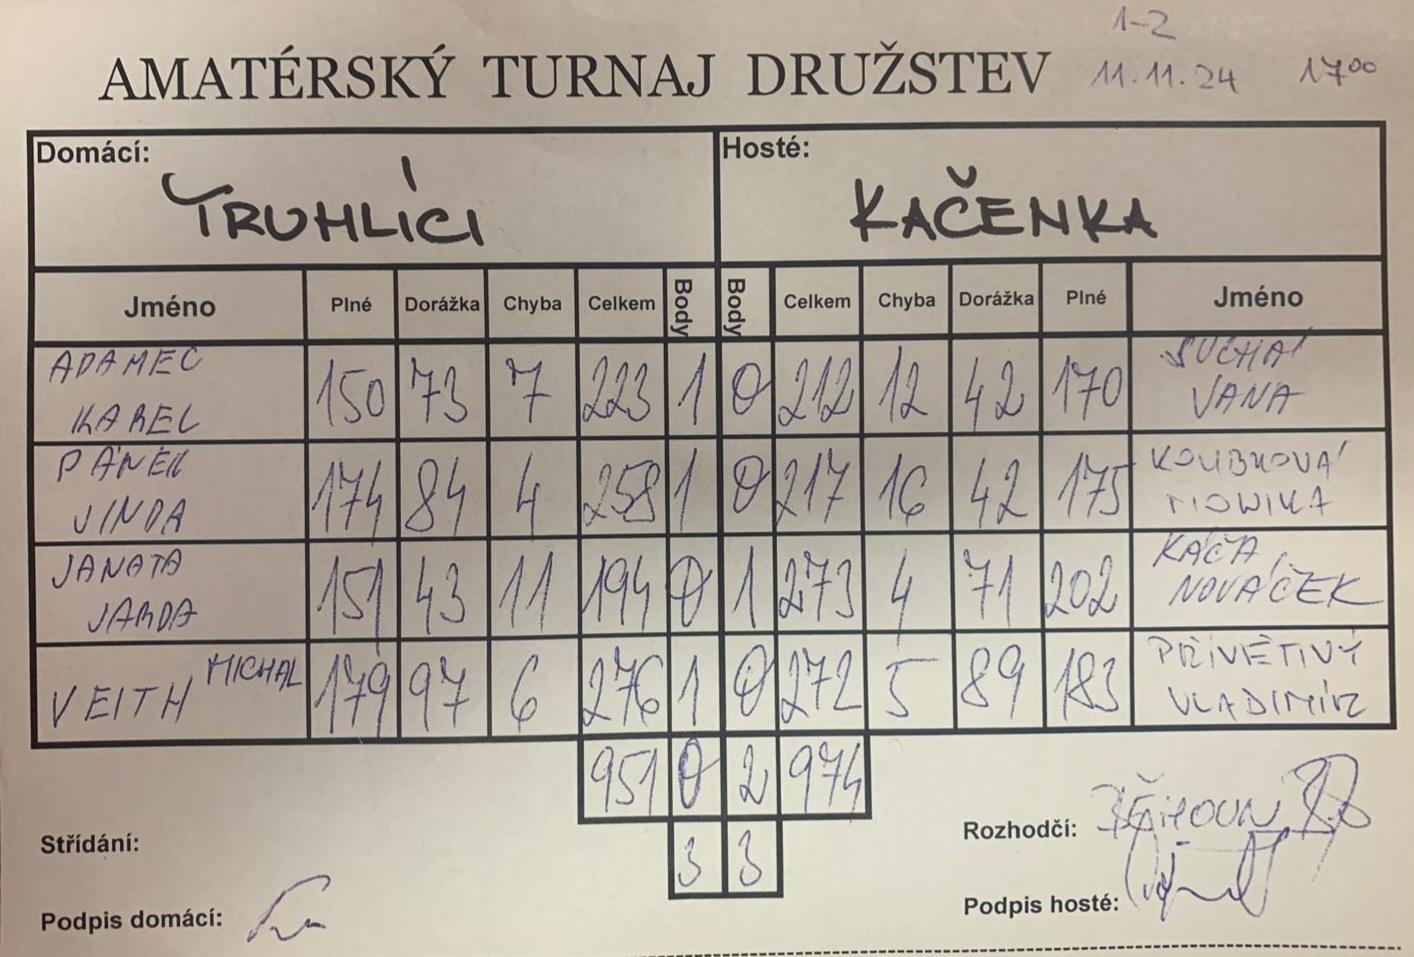 1-2
AMATÉRSKÝ TURNAJ DRUŽSTEV 11.11.24 17⁰⁰
Domácí: Hosté:
TRUHLÍCI KAČENKA
Jméno Plné Dorážka Chyba Celkem Body Body Celkem Chyba Dorážka Plné Jméno
ADAMEC KAREL 150 73 7 223 1 0 212 12 42 170 SUCHÁ VANA
PÁNEK JINDA 174 84 4 258 1 0 217 16 42 175 KOUBKOVÁ MONIKA
JANATA JARDA 151 43 11 194 0 1 273 4 71 202 KÁČA NOVÁČEK
VEITH MICHAL 179 97 6 276 1 0 272 5 89 183 PŘÍVĚTIVÝ VLADIMÍR
951 0 2 974
Střídání: 3 3 Rozhodčí:
Podpis domácí: Podpis hosté: